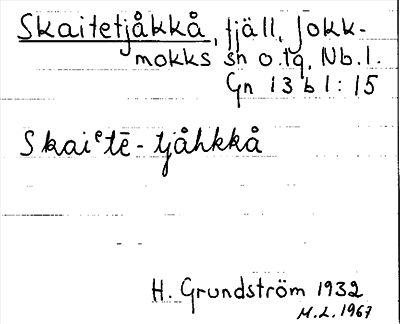 Skaitetjåkkå, fjäll, Jokk-
mokks sn o. tg, Nb. l.
Gn 13 b 1:15
Skaiᵉtē-tjåhkkå
H. Grundström 1932
M. L. 1967